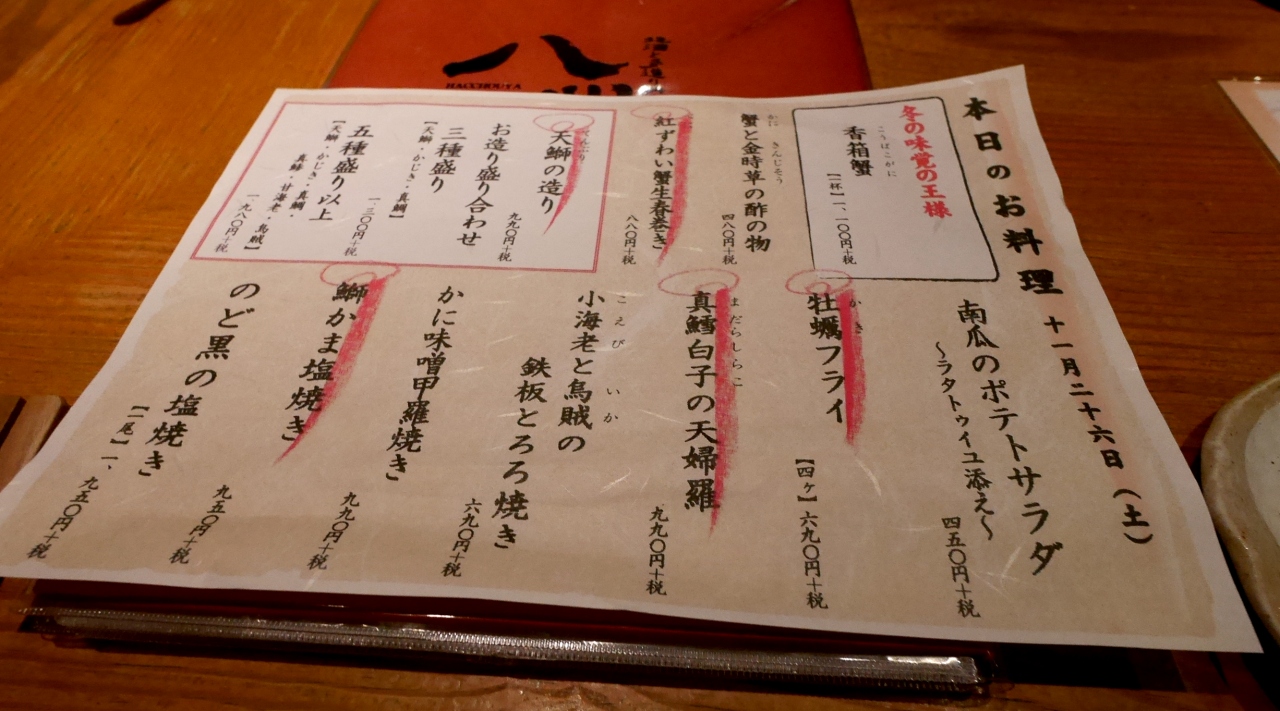 本日のお料理
十一月二十六日（土）
冬の味覚の王様
こうばこがに
香箱蟹
【一杯】一、一〇〇円＋税
かに きんじそう
蟹と金時草の酢の物
四八〇円＋税
紅ずわい蟹生春巻き
八八〇円＋税
てんぶり
天鰤の造り
九九〇円＋税
お造り盛り合わせ
三種盛り
【天鰤・かじき・真鯛】
一、三〇〇円＋税
五種盛り以上
【天鰤・かじき・真鯛・
真鯵・甘海老・烏賊】
一、九八〇円＋税
南瓜のポテトサラダ
～ラタトゥイユ添え～
四五〇円＋税
かき
牡蠣フライ
【四ケ】六九〇円＋税
まだらしらこ
真鱈白子の天婦羅
九九〇円＋税
こえび いか
小海老と烏賊の
鉄板とろろ焼き
六九〇円＋税
かに味噌甲羅焼き
九九〇円＋税
鰤かま塩焼き
九五〇円＋税
のど黒の塩焼き
【一尾】一、九五〇円＋税
八
HACCHOUYA